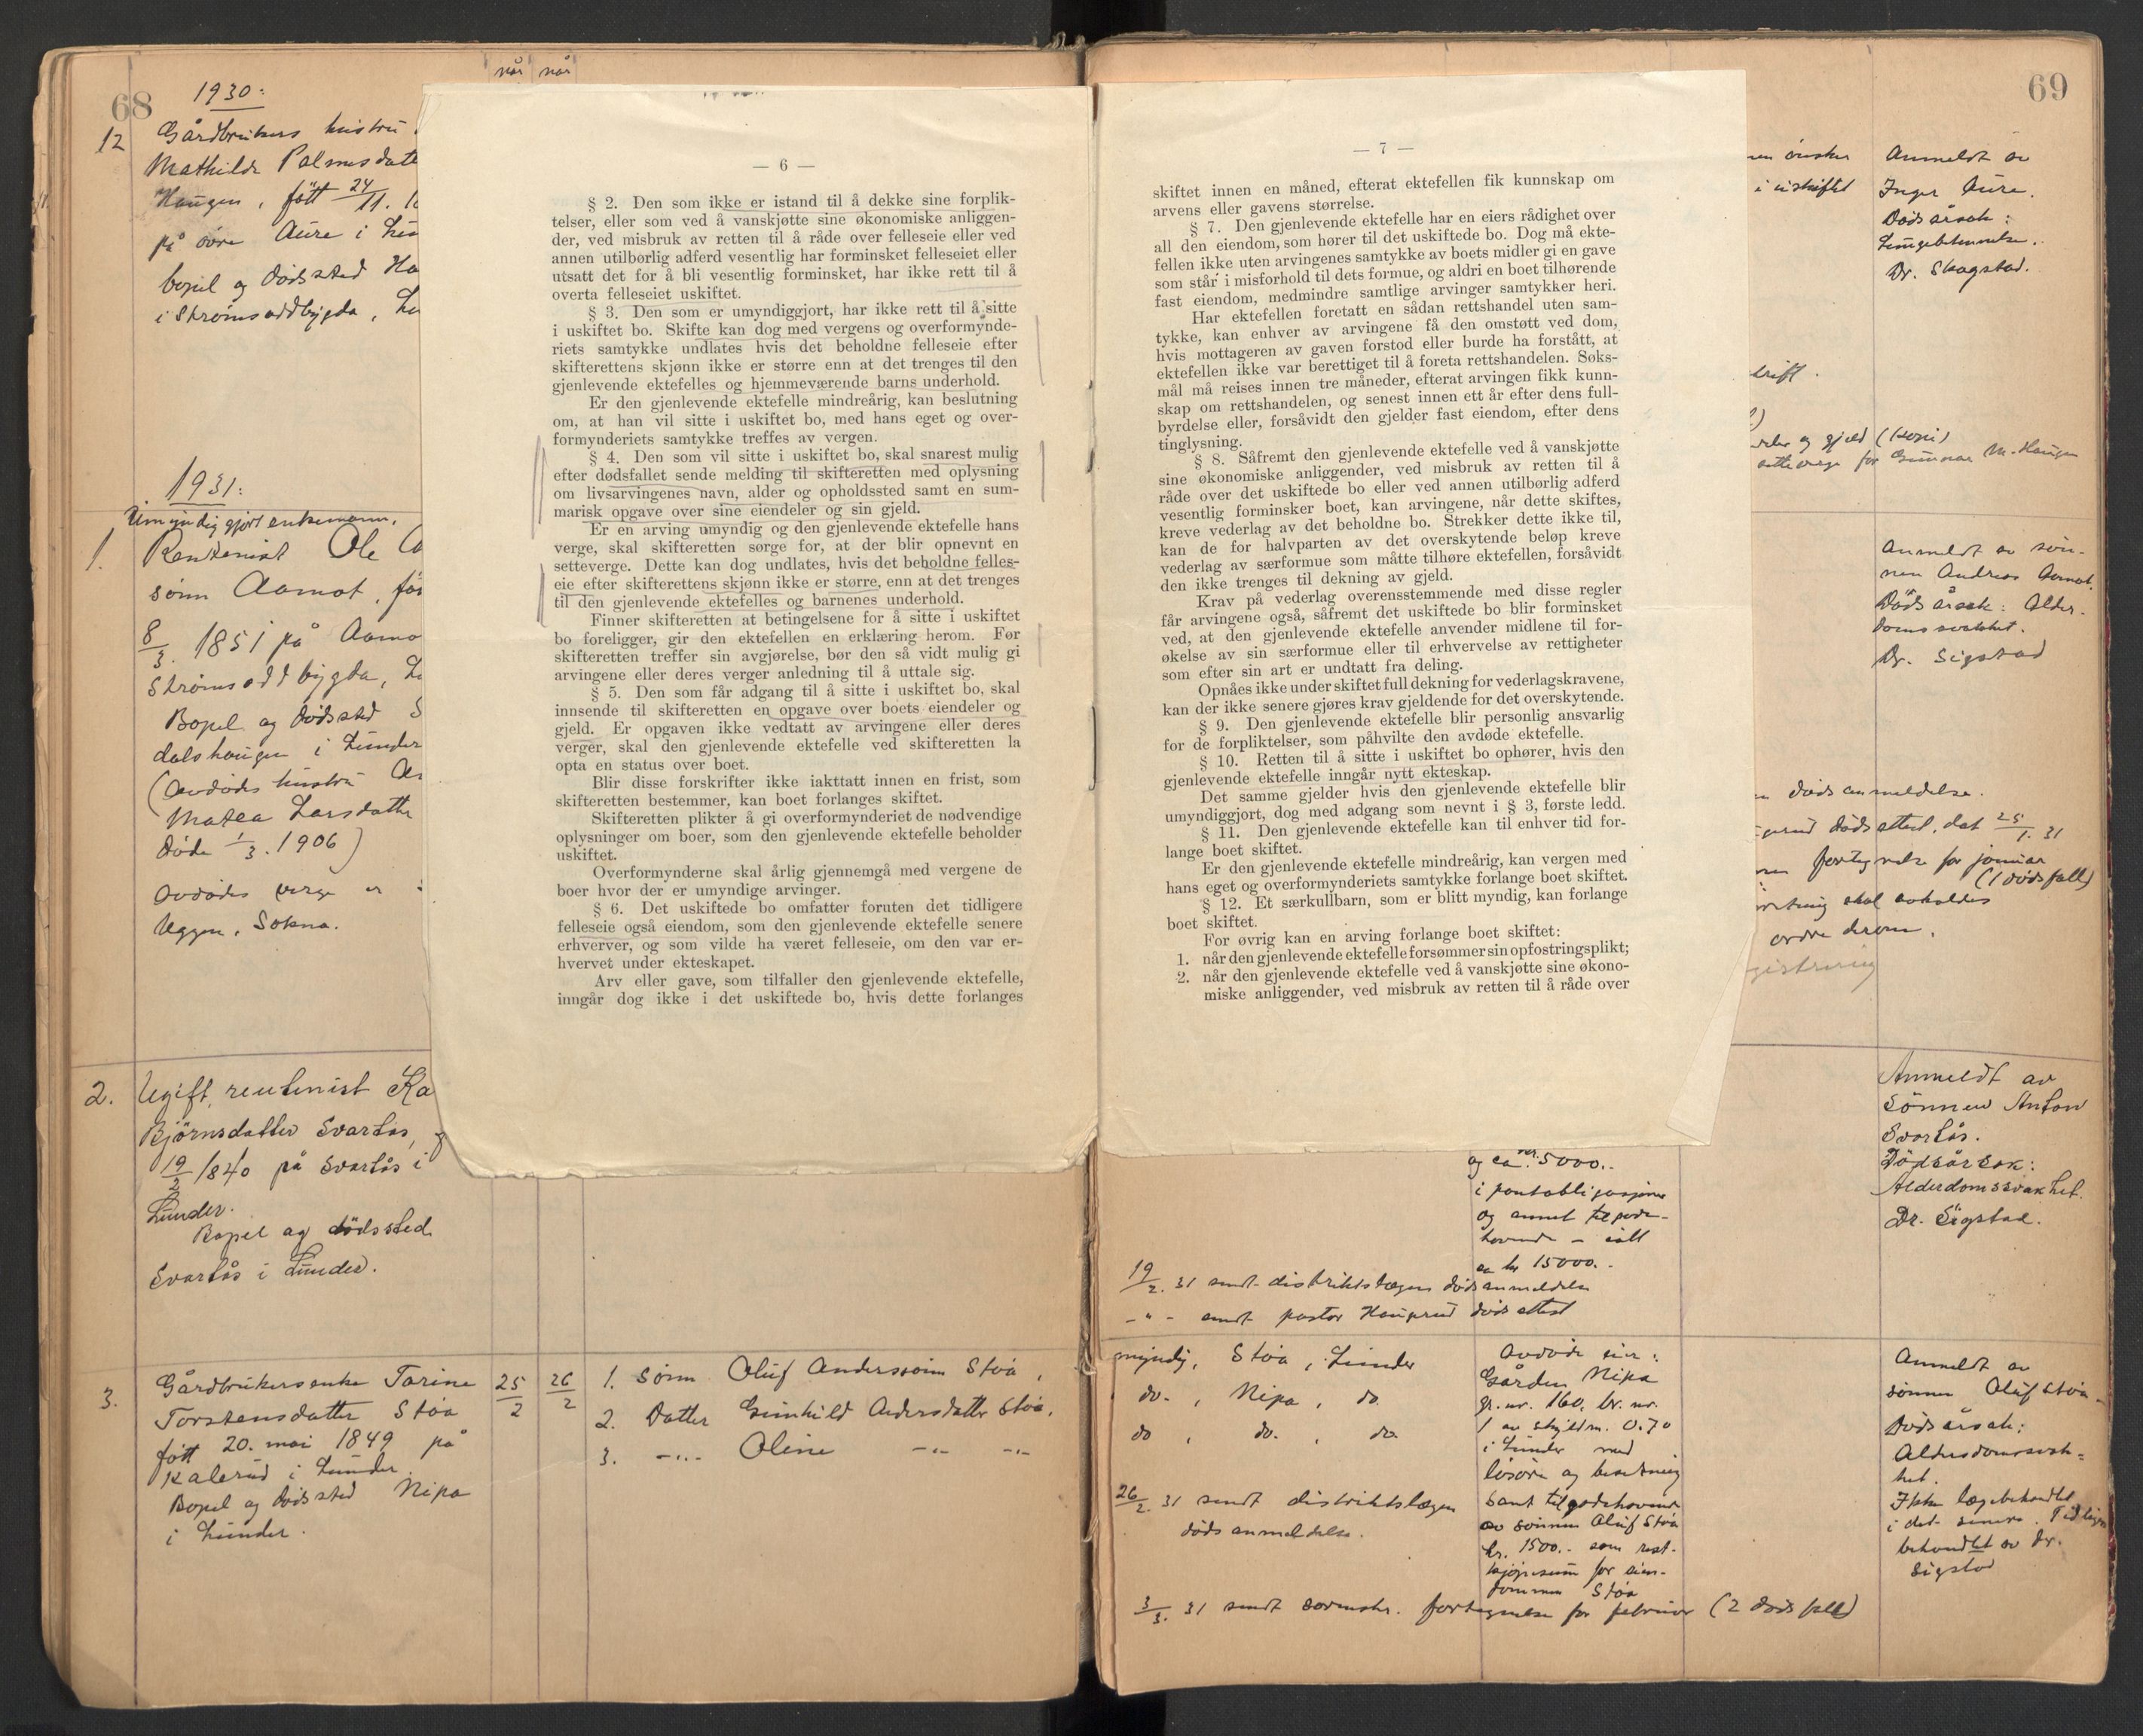 68
1930:
når når
12 Gårdbrukers hustru
Mathilde Palmesdatt
Haugen, fött 24/11. 1
på övre Aure i
bopel og dödssted Ha
i Strømsoddbygda,
1931:
Umyndiggjort enkemann.
1. Rentenist Ole
sönn Aamot, fö
8/3. 1851 på Aamo
Strømsoddbygda,
Bopel og dödssted S
dalshaugen i Lunder
(Avdödes hustru
Matea Larsdatter
döde 1/3. 1906)
Avdödes verge er
Uggen, Sokna.
2. Ugift, rentenist Ka
Björnsdatter Svartås,
19/2 1840 på Svartås i
Lunder.
Bopel og dödssted
Svartås i Lunder.
3. Gårdbrukersenke Torine
Torstensdatter Stöa
fött 20. mai 1849 på
Kalerud i Lunder.
Bopel og dödssted Nipa
i Lunder.
25/2 26/2
1. Sönn Oluf Anderssönn Stöa,
2. Datter Gunhild Andersdatter Stöa,
3. -"- Oline -"- -"-
— 6 —
§ 2. Den som ikke er istand til å dekke sine forplik-
telser, eller som ved å vanskjøtte sine økonomiske anliggen-
der, ved misbruk av retten til å råde over felleseie eller ved
annen utilbørlig adferd vesentlig har forminsket felleseiet eller
utsatt det for å bli vesentlig forminsket, har ikke rett til å
overta felleseiet uskiftet.
§ 3. Den som er umyndiggjort, har ikke rett til å sitte
i uskiftet bo. Skifte kan dog med vergens og overformynde-
riets samtykke undlates hvis det beholdne felleseie efter
skifterettens skjønn ikke er større enn at det trenges til den
gjenlevende ektefelles og hjemmeværende barns underhold.
Er den gjenlevende ektefelle mindreårig, kan beslutning
om, at han vil sitte i uskiftet bo, med hans eget og over-
formynderiets samtykke treffes av vergen.
§ 4. Den som vil sitte i uskiftet bo, skal snarest mulig
efter dødsfallet sende melding til skifteretten med oplysning
om livsarvingenes navn, alder og opholdssted samt en sum-
marisk opgave over sine eiendeler og sin gjeld.
Er en arving umyndig og den gjenlevende ektefelle hans
verge, skal skifteretten sørge for, at der blir opnevnt en
setteverge. Dette kan dog undlates, hvis det beholdne felles-
eie efter skifterettens skjønn ikke er større, enn at det trenges
til den gjenlevende ektefelles og barnenes underhold.
Finner skifteretten at betingelsene for å sitte i uskiftet
bo foreligger, gir den ektefellen en erklæring herom. Før
skifteretten treffer sin avgjørelse, bør den så vidt mulig gi
arvingene eller deres verger anledning til å uttale sig.
§ 5. Den som får adgang til å sitte i uskiftet bo, skal
innsende til skifteretten en opgave over boets eiendeler og
gjeld. Er opgaven ikke vedtatt av arvingene eller deres
verger, skal den gjenlevende ektefelle ved skifteretten la
opta en status over boet.
Blir disse forskrifter ikke iakttatt innen en frist, som
skifteretten bestemmer, kan boet forlanges skiftet.
Skifteretten plikter å gi overformynderiet de nødvendige
oplysninger om boer, som den gjenlevende ektefelle beholder
uskiftet.
Overformynderne skal årlig gjennemgå med vergene de
boer hvor der er umyndige arvinger.
§ 6. Det uskiftede bo omfatter foruten det tidligere
felleseie også eiendom, som den gjenlevende ektefelle senere
erhverver, og som vilde ha været felleseie, om den var er-
hvervet under ekteskapet.
Arv eller gave, som tilfaller den gjenlevende ektefelle,
inngår dog ikke i det uskiftede bo, hvis dette forlanges
— 7 —
skiftet innen en måned, efterat ektefellen fik kunnskap om
arvens eller gavens størrelse.
§ 7. Den gjenlevende ektefelle har en eiers rådighet over
all den eiendom, som hører til det uskiftede bo. Dog må ekte-
fellen ikke uten arvingenes samtykke av boets midler gi en gave
som står i misforhold til dets formue, og aldri en boet tilhørende
fast eiendom, medmindre samtlige arvinger samtykker heri.
Har ektefellen foretatt en sådan rettshandel uten sam-
tykke, kan enhver av arvingene få den omstøtt ved dom,
hvis mottageren av gaven forstod eller burde ha forstått, at
ektefellen ikke var berettiget til å foreta rettshandelen. Søks-
mål må reises innen tre måneder, efterat arvingen fikk kunn-
skap om rettshandelen, og senest innen ett år efter dens full-
byrdelse eller, forsåvidt den gjelder fast eiendom, efter dens
tinglysning.
§ 8. Såfremt den gjenlevende ektefelle ved å vanskjøtte
sine økonomiske anliggender, ved misbruk av retten til å
råde over det uskiftede bo eller ved annen utilbørlig adferd
vesentlig forminsker boet, kan arvingene, når dette skiftes,
kreve vederlag av det beholdne bo. Strekker dette ikke til,
kan de for halvparten av det overskytende beløp kreve
vederlag av særformue som måtte tilhøre ektefellen, forsåvidt
den ikke trenges til dekning av gjeld.
Krav på vederlag overensstemmende med disse regler
får arvingene også, såfremt det uskiftede bo blir forminsket
ved, at den gjenlevende ektefelle anvender midlene til for-
økelse av sin særformue eller til erhvervelse av rettigheter
som efter sin art er undtatt fra deling.
Opnåes ikke under skiftet full dekning for vederlagskravene,
kan der ikke senere gjøres krav gjeldende for det overskytende.
§ 9. Den gjenlevende ektefelle blir personlig ansvarlig
for de forpliktelser, som påhvilte den avdøde ektefelle.
§ 10. Retten til å sitte i uskiftet bo ophører, hvis den
gjenlevende ektefelle inngår nytt ekteskap.
Det samme gjelder hvis den gjenlevende ektefelle blir
umyndiggjort, dog med adgang som nevnt i § 3, første ledd.
§ 11. Den gjenlevende ektefelle kan til enhver tid for-
lange boet skiftet.
Er den gjenlevende ektefelle mindreårig, kan vergen med
hans eget og overformynderiets samtykke forlange boet skiftet.
§ 12. Et særkullbarn, som er blitt myndig, kan forlange
boet skiftet.
For øvrig kan en arving forlange boet skiftet:
1. når den gjenlevende ektefelle forsømmer sin opfostringsplikt;
2. når den gjenlevende ektefelle ved å vanskjøtte sine økono-
miske anliggender, ved misbruk av retten til å råde over
69
ønsker
i uskiftet
og gjeld (kopi)
setteverge for Gunnar M. Haugen
dödsanmeldelse.
dödsattest, dat 25/1. 31
fortegnelse for januar
(1 dödsfall)
skal avholdes
ordre derom.
gistrering
Anmeldt av
Inger Aure.
Dödsårsak:
Lungebetennelse.
Dr. Skagstad.
Anmeldt av sön-
nen Andreas Aamot.
Dödsårsak: Alder-
domssvakhet.
Dr. Sigstad
Anmeldt av
Sönnen Anton
Svartås.
Dödsårsak:
Alderdomssvakhet.
Dr. Sigstad.
og ca kr. 5000.-
i pantobligasjoner
og annet tilgode-
havende – ialt
ca kr 15000.-
19/2. 31 sendt distriktslægen dödsanmeldelse
-"- sendt pastor Haugerud dödsattest
myndig, Stöa, Lunder
do., Nipa, do.
do, do., do.
26/2. 31 sendt distriktslægen
dödsanmeldelse.
Avdöde eier:
Gården Nipa
gr. nr. 160, br. nr.
1 av skyldm. 0.70
i Lunder med
lösöre og besetning
samt tilgodehavende
av sönnen Oluf Stöa
kr. 1500.- som rest-
kjöpesum for eien-
dommen Stöa
3/3. 31 sendt sorenskr. fortegnelse for februar (2 dödsfall)
Anmeldt av
sönnen Oluf Stöa
Dödsårsak:
Alderdomssvak-
het.
Ikke lægebehandlet
i det senere. Tidligere
behandlet av Dr.
Sigstad